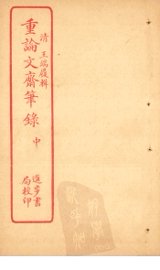 清 王端履輯
重論文齋筆錄
中
進步書
局校印